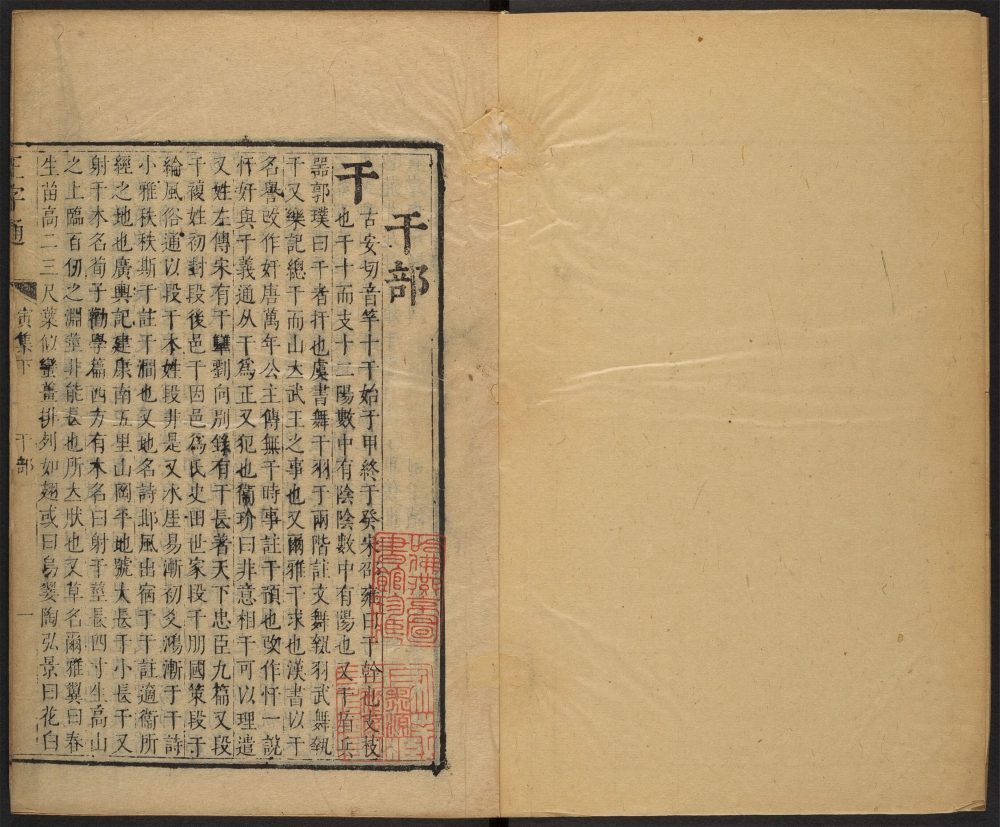 干部
干
古安切音竿十干始于甲終于癸宋邵雍曰干幹也支枝
也干十而支十二陽數中有陰陰數中有陽也又干盾兵
器郭璞曰干者扞也虞書舞干羽于兩階註文舞執羽武舞執
干又樂記總干而山立武王之事也又爾雅干求也漢書以干
名譽改作奸唐萬年公主傳無干時事註干預也改作忓一說
忓奸與干義通从干為正又犯也衞玠曰非意相干可以理遣
又姓左傳宋有干犨劉向別錄有干長著天下忠臣九篇又段
干複姓初封段後邑干因邑為氏史田世家段干朋國策段干
綸風俗通以段干木姓段非是又水厓易漸初爻鴻漸于干詩
小雅秩秩斯干註干澗也又地名詩邶風出宿于干註適衞所
經之地也廣輿記建康南五里山岡平地號大長干小長干又
射干木名荀子勸學篇西方有木名曰射干莖長四寸生高山
之上臨百仞之淵莖非能長也所立狀也又草名爾雅翼曰春
生苗高二三尺葉似蠻薑排列如翅或曰烏翣陶弘景曰花白
正字通 寅集下 干部 一